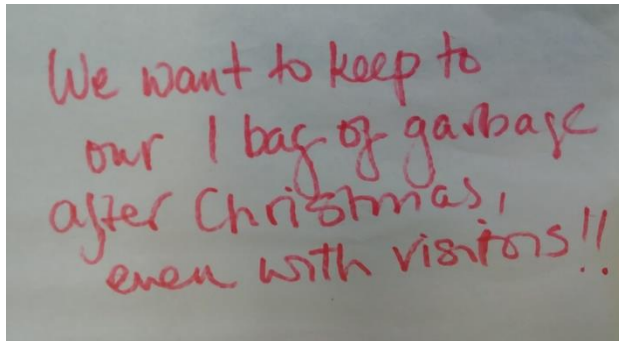 We want to keep to
our 1 bag of garbage
after Christmas,
even with visitors!!